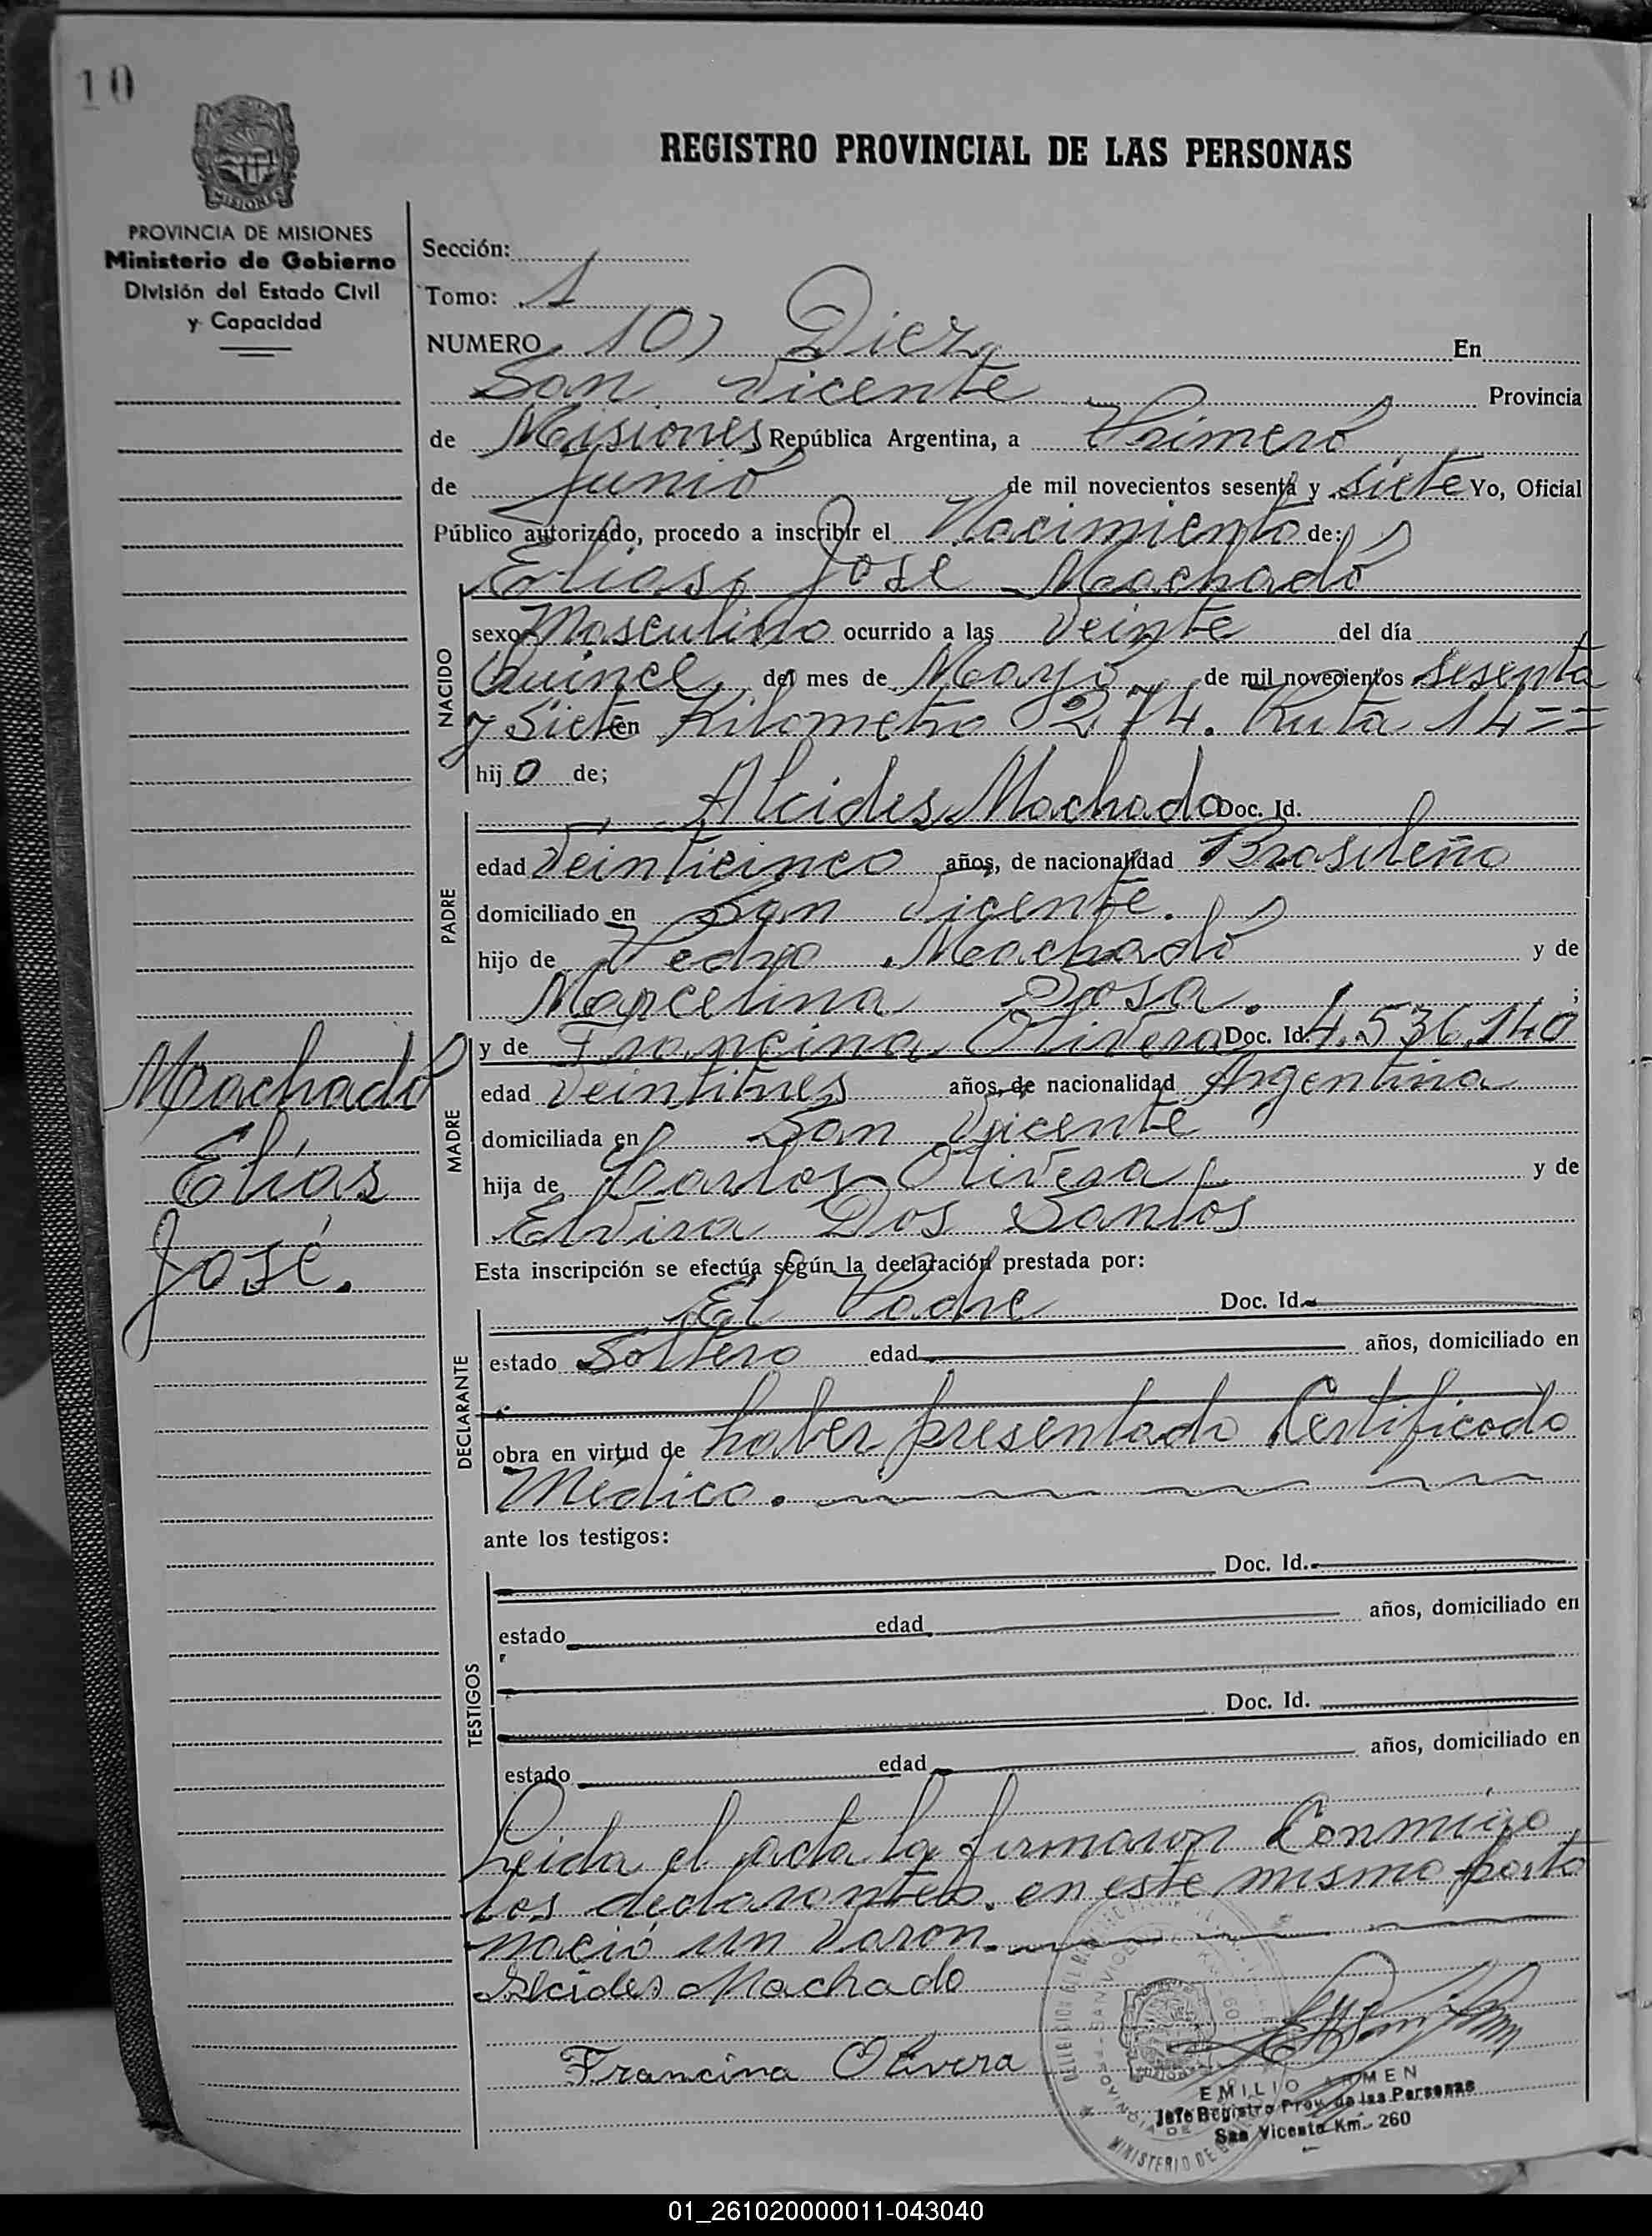 10
REGISTRO PROVINCIAL DE LAS PERSONAS
MISIONES
PROVINCIA DE MISIONES
Ministerio de Gobierno
División del Estado Civil
y Capacidad
Sección:
Tomo: 1
NUMERO 10) Diez En
San Vicente Provincia
de Misiones República Argentina, a Primero
de Junio de mil novecientos sesenta y siete Yo, Oficial
Público autorizado, procedo a inscribir el Nacimiento de:
Elías José Machado
NACIDO
sexo Masculino ocurrido a las Veinte del día
Quince del mes de Mayo de mil novecientos sesenta
y Siete en Kilometro 274. Ruta 14==
hijo de;
PADRE
Alcides Machado Doc. Id.
edad Veinticinco años, de nacionalidad Brasileño
domiciliado en San Vicente.
hijo de Pedro Machado y de
Marcelina Sosa. ;
MADRE
y de Francina Olivera Doc. Id. 4.536.140
edad Veintitres años, de nacionalidad Argentina
domiciliada en San Vicente
hija de Carlos Olivera y de
Elvira Dos Santos
Machado
Elías
José.
Esta inscripción se efectúa según la declaración prestada por:
DECLARANTE
El Padre Doc. Id.
estado Soltero edad años, domiciliado en
obra en virtud de haber presentado Certificado
Médico.
ante los testigos:
TESTIGOS
Doc. Id.
estado edad años, domiciliado en
Doc. Id.
estado edad años, domiciliado en
Leida el acta la firmaron Conmigo
los declarantes. en este mismo parto
nació un Varon.
Alcides Machado
Francina Olivera
EMILIO ARMEN
Jefe Registro Prov. de las Personas
San Vicente Km. 260
MINISTERIO DE
01_261020000011-043040